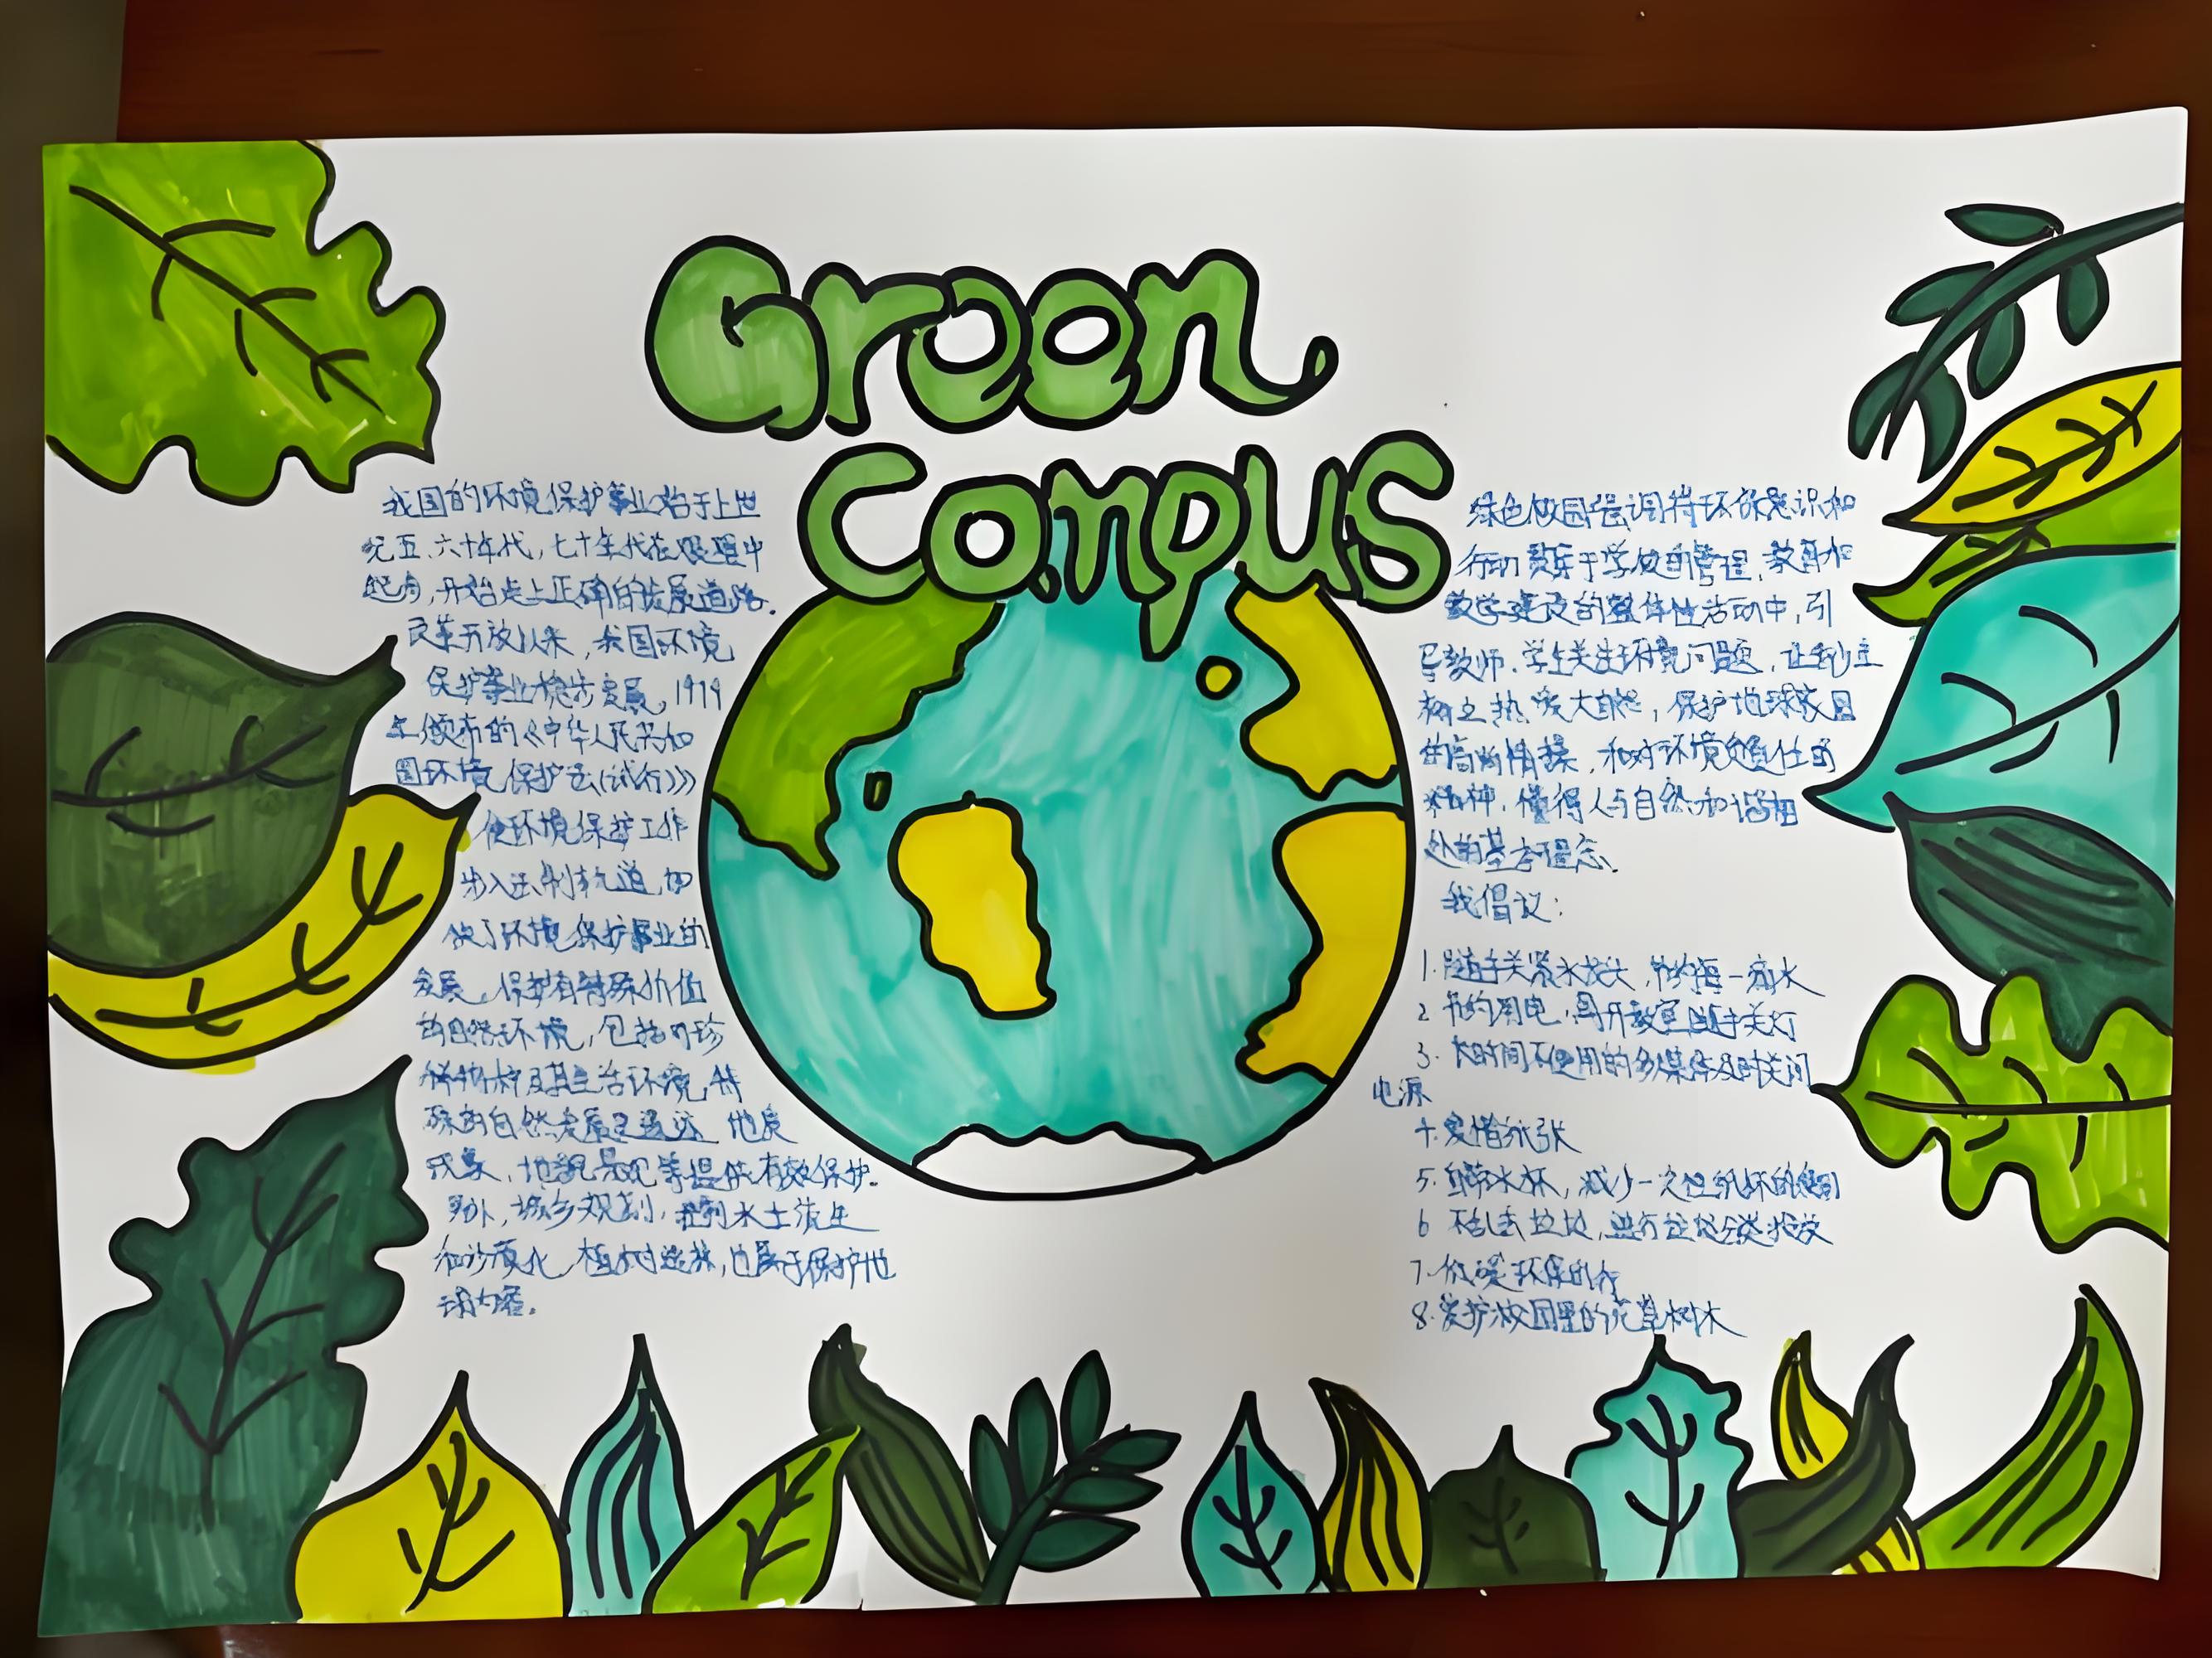 Green
Compus
我国的环境保护事业始于上世
纪五、六十年代,七十年代在艰难中
起步,开始走上正确的发展道路.
改革开放以来,我国环境
保护事业稳步发展,1979
年颁布的《中华人民共和
国环境保护法(试行)》
使环境保护工作
步入法制轨道,加
快了环境保护事业的
发展,保护有特殊价值
的自然环境,包括对珍
稀物种及其生活环境,特
殊的自然发展史遗迹 地质
现象,地貌景观等提供有效保护.
另外,城乡规划,控制水土流失
和沙漠化,植树造林,也属于保护地
内容.
绿色校园强调将环保意识和
行动贯乐于学校的管理,教育和
教学建设的整体性活动中,引
导教师.学生关注环境问题,让
树立热爱大自然,保护地球家园
的高尚情操,和对环境负责任的
精神,懂得人与自然和谐相
处的基本理念.
我倡议:
1.随手关紧水龙头,节约每一滴水
2.节约用电,离开教室随手关灯
3.长时间不使用的多媒体及时关闭
电源
4.爱惜纸张
5.自带水杯,减少一次性纸杯的使用
6 不乱丢垃圾,进行垃圾分类投放
7.环保的行
8.爱护校园里的花草树木